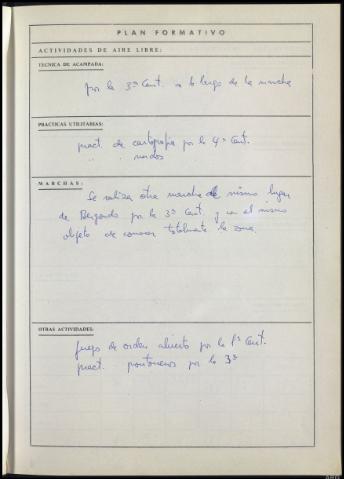 PLAN FORMATIVO
ACTIVIDADES DE AIRE LIBRE:
TECNICA DE ACAMPADA:
por la 3ª Cent. a lo largo de la marcha
PRACTICAS UTILITARIAS:
pract. de cartografia por la 4ª Cent.
" " nudos
MARCHAS:
Se realiza otra marcha al mismo lugar
de Bergondo por la 3ª Cent. y con el mismo
objeto de conocer totalmente la zona.
OTRAS ACTIVIDADES:
juego de orden abierto por la 1ª Cent.
pract. pontoneros por la 3ª